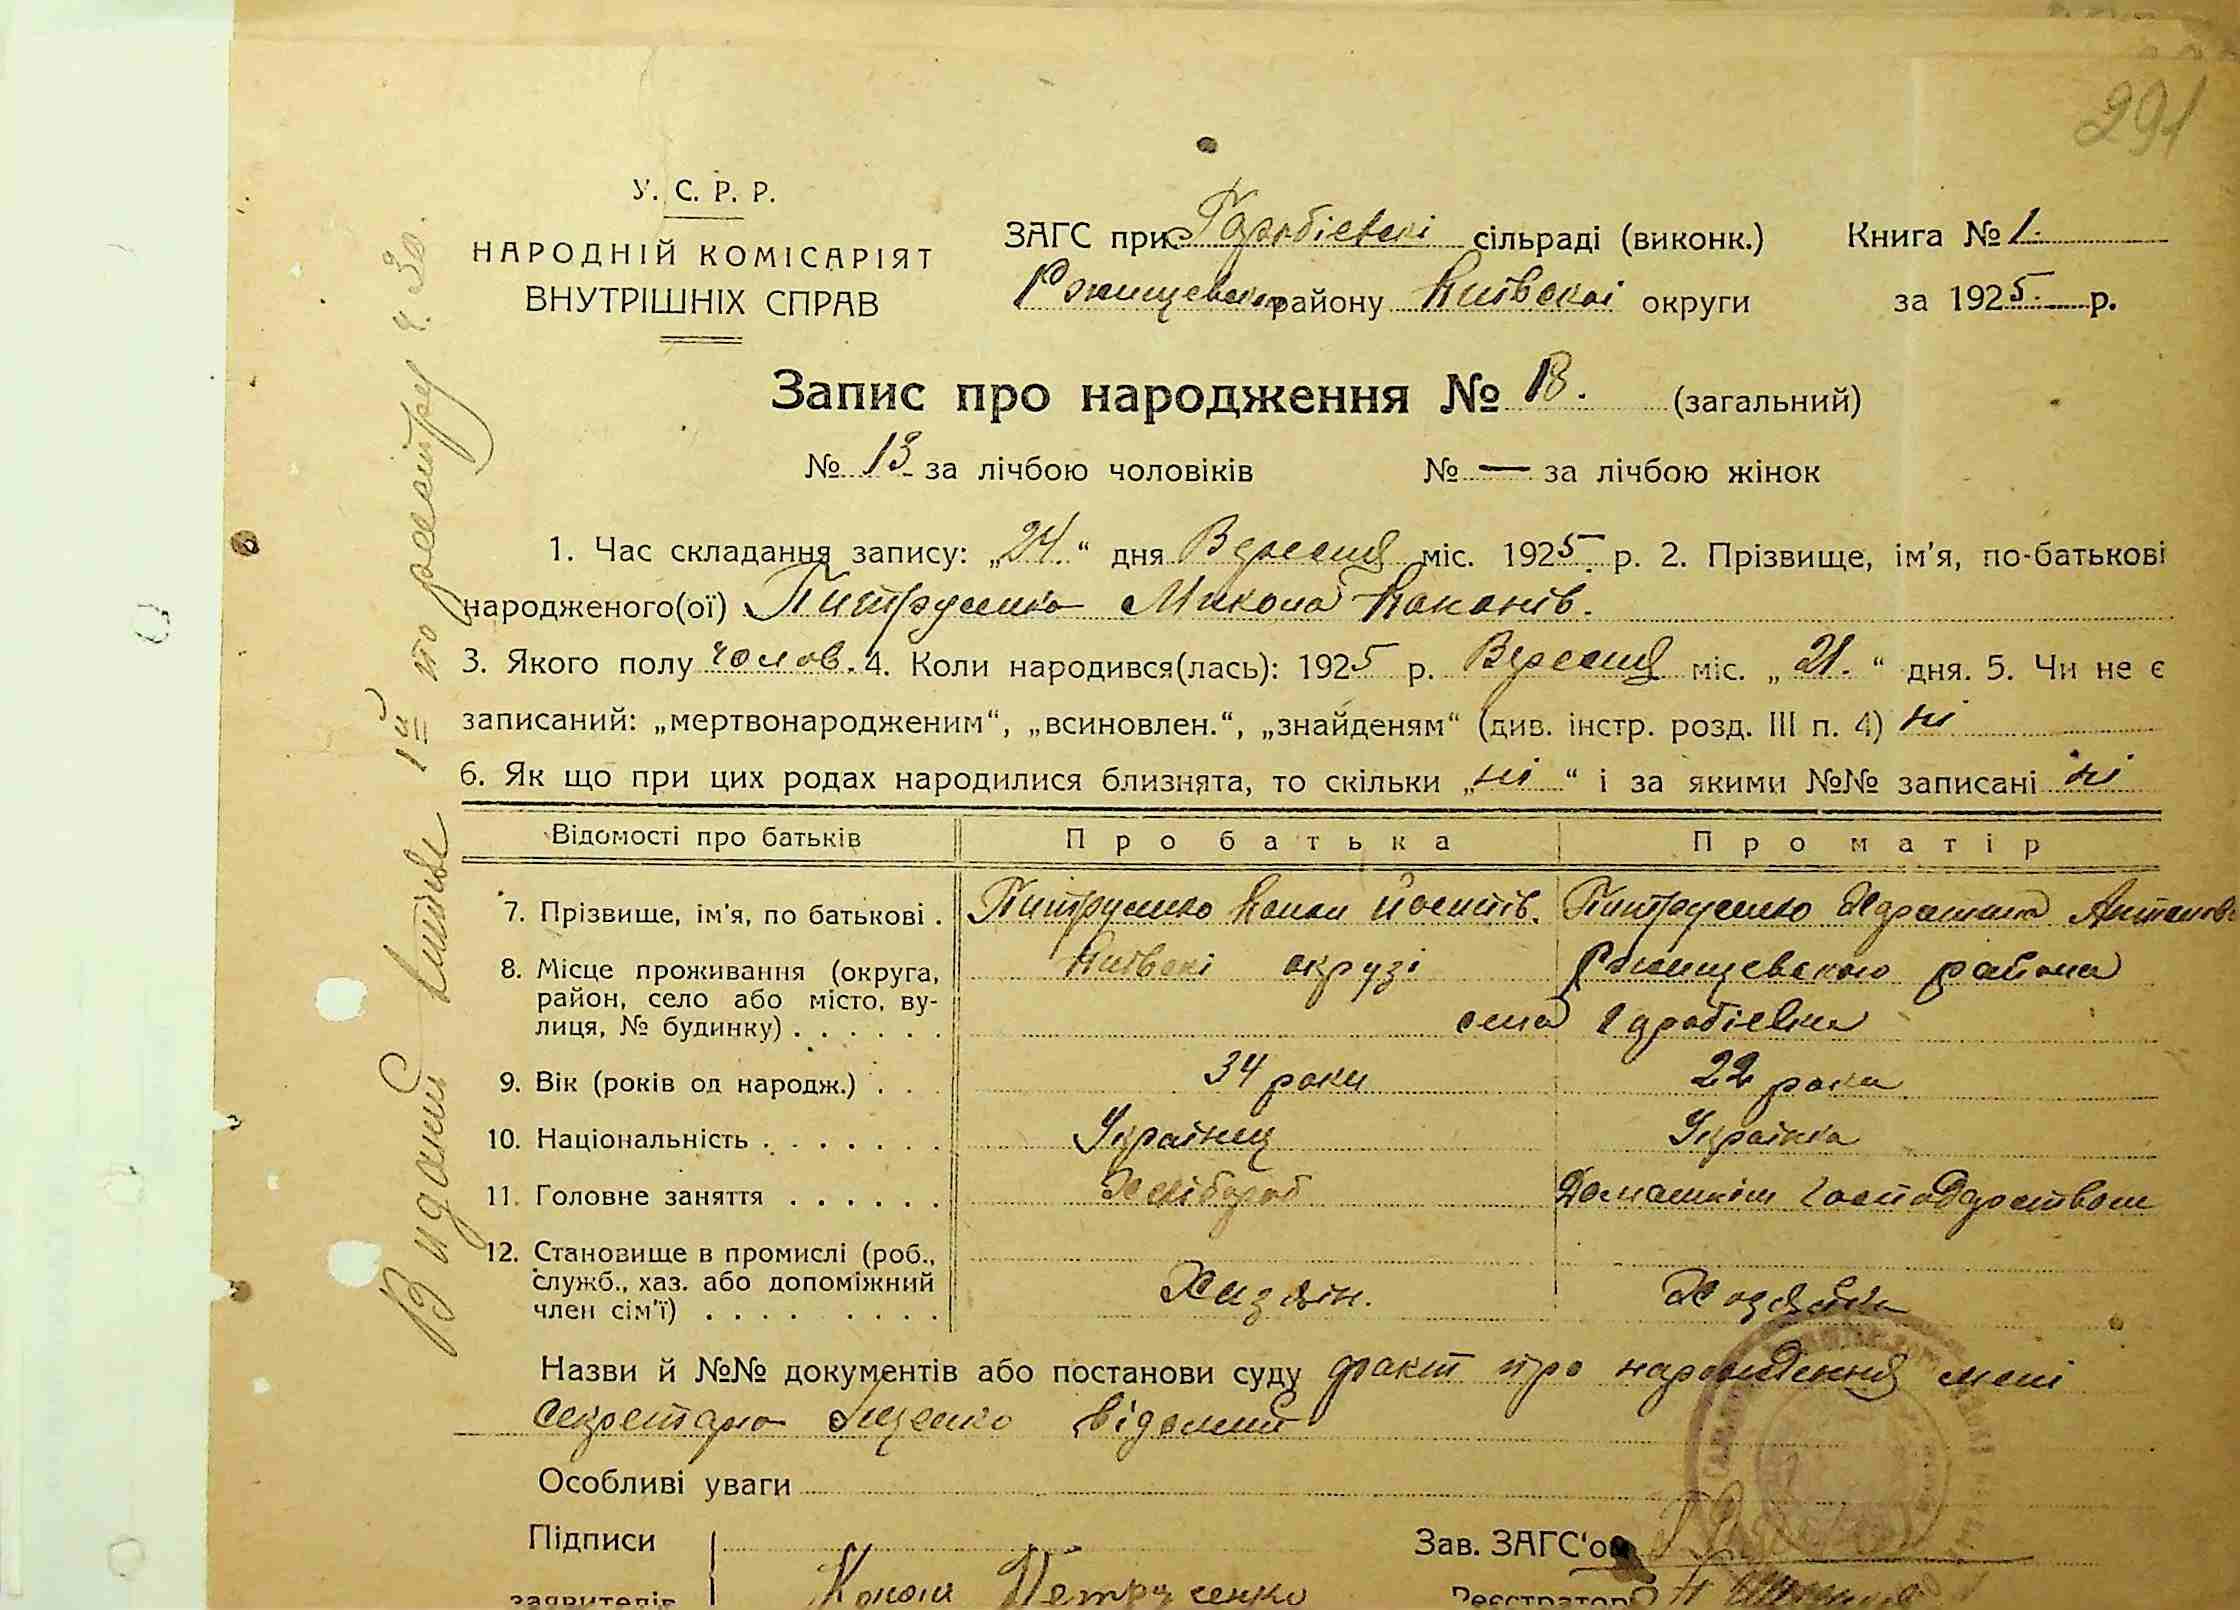 291
У. С. Р. Р.
НАРОДНІЙ КОМІСАРІЯТ
ВНУТРІШНІХ СПРАВ
ЗАГС при сільраді (виконк.) Книга № 1.
району Київскої округи за 1925 р.
Запис про народження № 18. (загальний)
№ 13 за лічбою чоловіків № — за лічбою жінок
1. Час складання запису: „24.“ дня Вересня міс. 1925 р. 2. Прізвище, ім'я, по-батькові
народженого(ої) Питрусенко Микола Кононів.
3. Якого полу чолов. 4. Коли народився(лась): 1925 р. Вересня міс. „21.“ дня. 5. Чи не є
записаний: „мертвонародженим“, „всиновлен.“, „знайденям“ (див. інстр. розд. III п. 4) ні
6. Як що при цих родах народилися близнята, то скільки „ні“ і за якими №№ записані ні
Відомості про батьків Про батька Про матір
7. Прізвище, ім'я, по батькові . Питрусенко Конон Йосипів. Питрусенко
8. Місце проживання (округа, Київскі окрузі района
район, село або місто, ву-
лиця, № будинку) . . . . . . села
9. Вік (років од народж.) . . . 34 роки 22 роки
10. Національність . . . . . . . Українец Українка
11. Головне заняття . . . . . . Хлібороб Домашнім господарством
12. Становище в промислі (роб.,
служб., хаз. або допоміжний Хазяін. Хозяйка
член сім'ї) . . . . . . . .
Назви й №№ документів або постанови суду факт про народження мені
секретарю Іщенко відомий
Особливі уваги
Підписи Зав. ЗАГС'ом
заявителів Конон Петрусенко Реєстратор
Виданий витяг 1й по реєстру ч. 30.